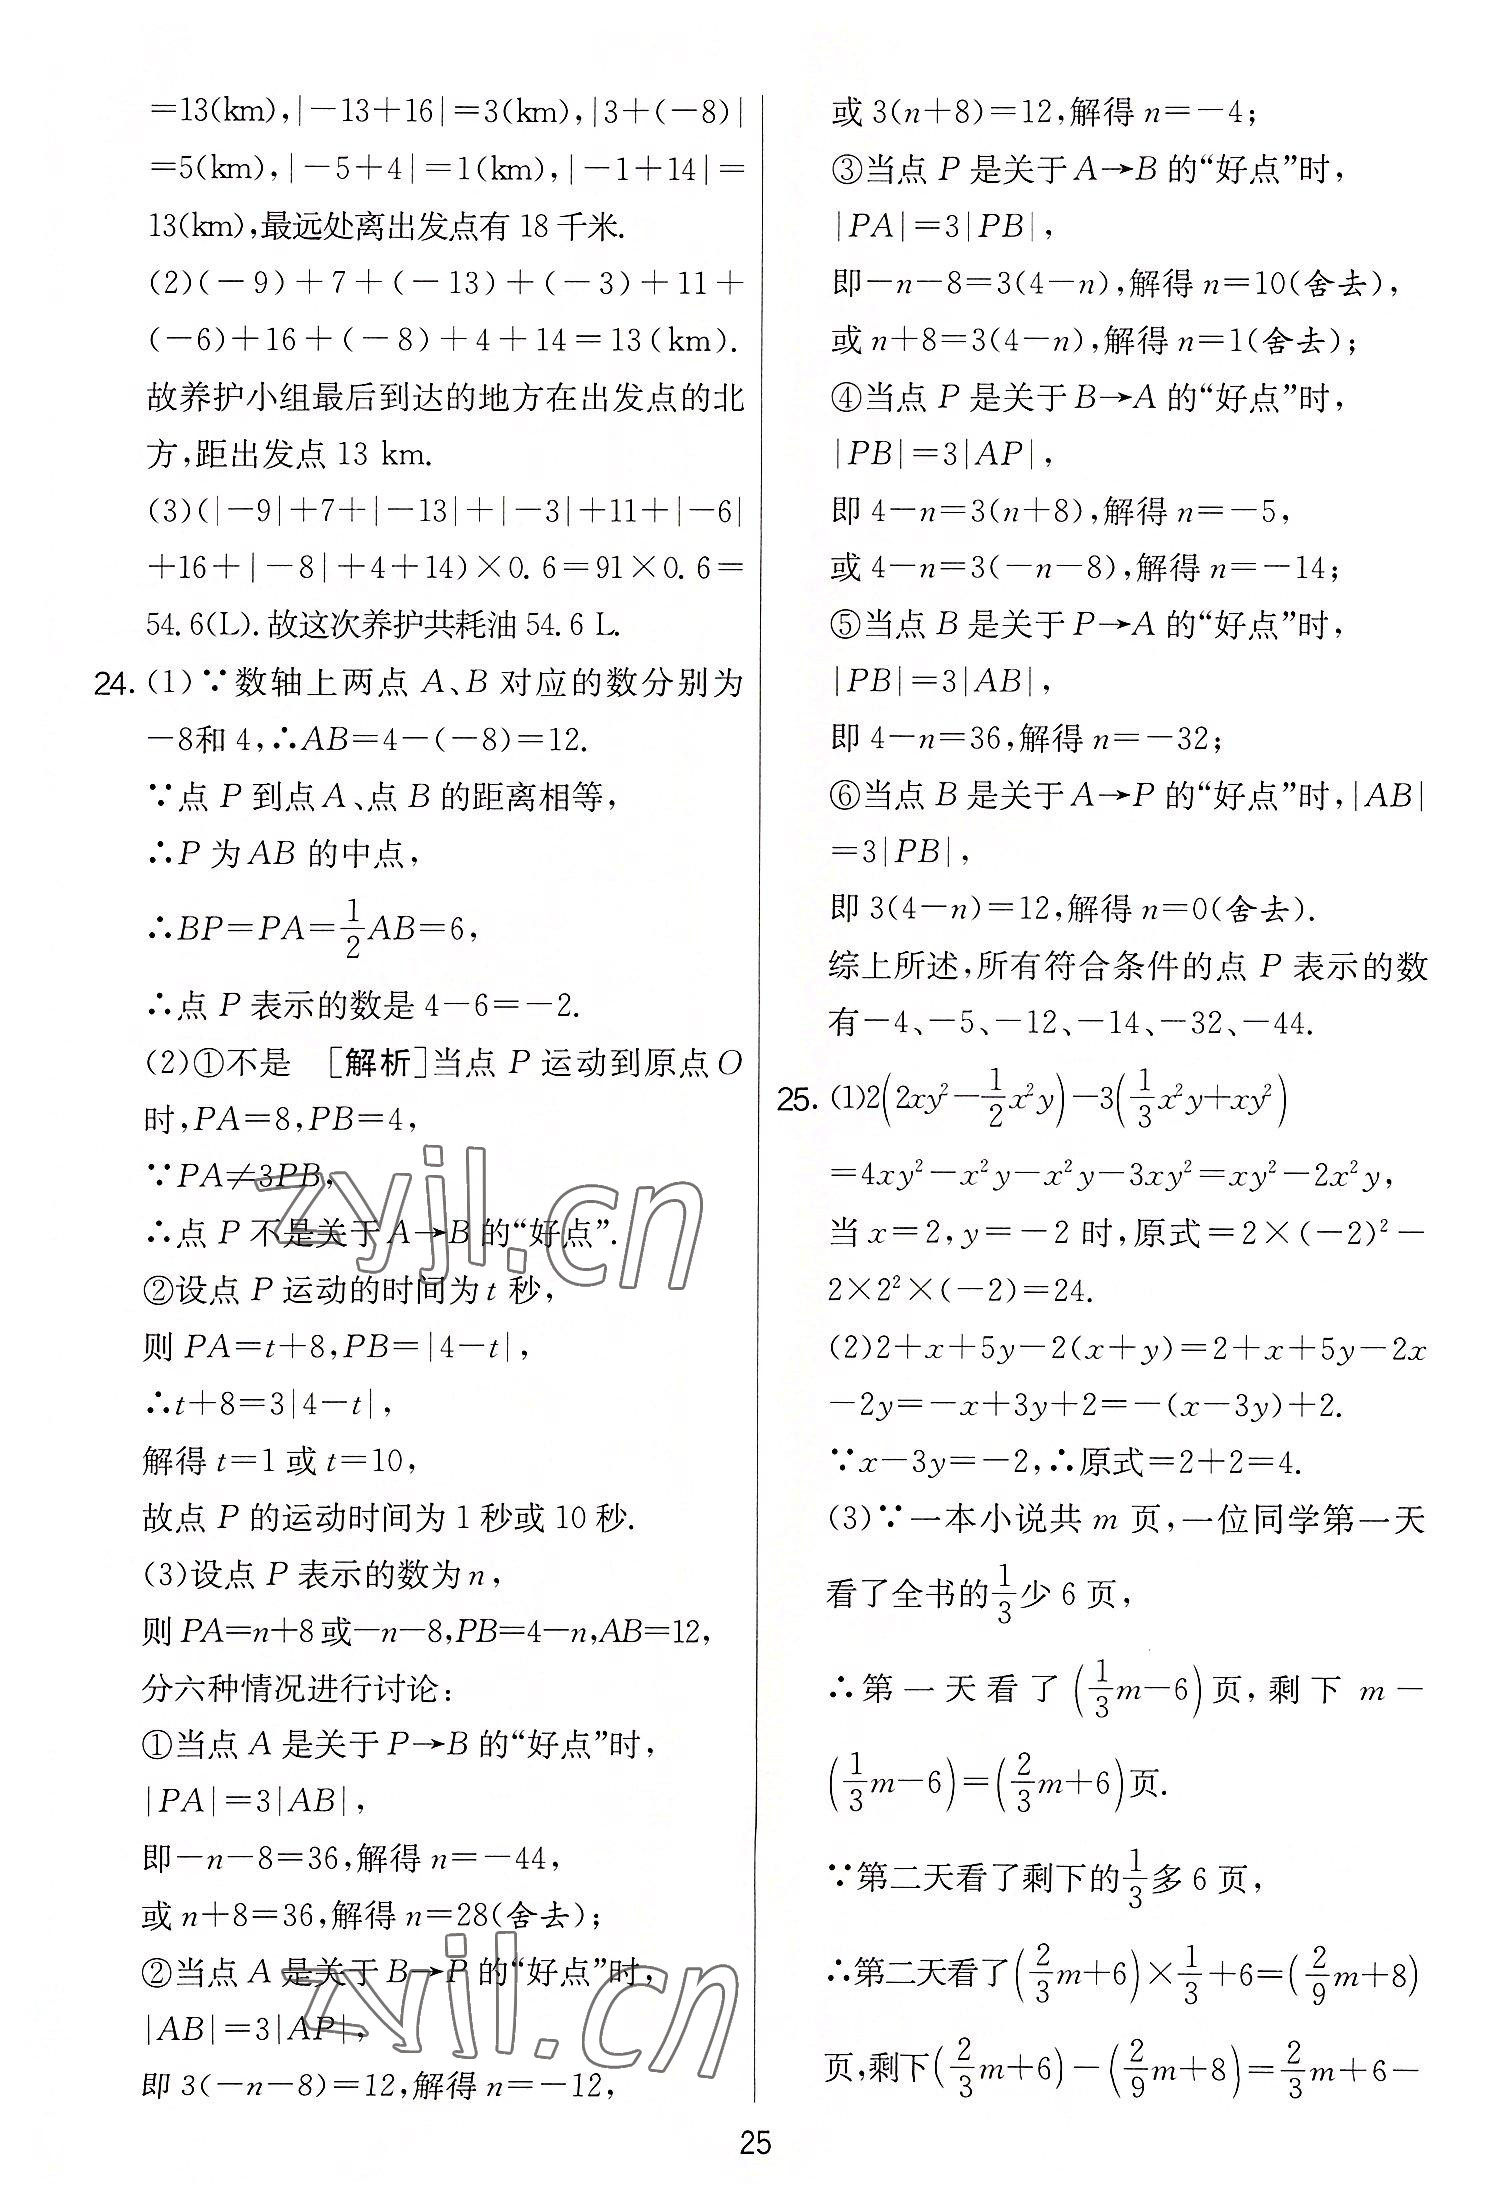 =13(km),|-13+16|=3(km),|3+(-8)|
=5(km),|-5+4|=1(km),|-1+14|=
13(km),最远处离出发点有 18 千米.
(2)(-9)+7+(-13)+(-3)+11+
(-6)+16+(-8)+4+14=13(km).
故养护小组最后到达的地方在出发点的北
方,距出发点 13 km.
(3)(|-9|+7+|-13|+|-3|+11+|-6|
+16+|-8|+4+14)×0.6=91×0.6=
54.6(L).故这次养护共耗油 54.6 L.
24. (1)∵数轴上两点 A、B 对应的数分别为
-8和 4,∴AB=4-(-8)=12.
∵点 P 到点 A、点 B 的距离相等,
∴P 为 AB 的中点,
∴BP=PA=\frac{1}{2}AB=6,
∴点 P 表示的数是 4-6=-2.
(2)①不是 [解析]当点 P 运动到原点 O
时,PA=8,PB=4,
∵PA≠3PB,
∴点 P 不是关于 A→B 的“好点”.
②设点 P 运动的时间为 t 秒,
则 PA=t+8,PB=|4-t|,
∴t+8=3|4-t|,
解得 t=1 或 t=10,
故点 P 的运动时间为 1 秒或 10 秒.
(3)设点 P 表示的数为 n,
则 PA=n+8 或-n-8,PB=4-n,AB=12,
分六种情况进行讨论:
①当点 A 是关于 P→B 的“好点”时,
|PA|=3|AB|,
即-n-8=36,解得 n=-44,
或 n+8=36,解得 n=28(舍去);
②当点 A 是关于 B→P 的“好点”时,
|AB|=3|AP|,
即 3(-n-8)=12,解得 n=-12,
或 3(n+8)=12,解得 n=-4;
③当点 P 是关于 A→B 的“好点”时,
|PA|=3|PB|,
即-n-8=3(4-n),解得 n=10(舍去),
或 n+8=3(4-n),解得 n=1(舍去);
④当点 P 是关于 B→A 的“好点”时,
|PB|=3|AP|,
即 4-n=3(n+8),解得 n=-5,
或 4-n=3(-n-8),解得 n=-14;
⑤当点 B 是关于 P→A 的“好点”时,
|PB|=3|AB|,
即 4-n=36,解得 n=-32;
⑥当点 B 是关于 A→P 的“好点”时,|AB|
=3|PB|,
即 3(4-n)=12,解得 n=0(舍去).
综上所述,所有符合条件的点 P 表示的数
有-4、-5、-12、-14、-32、-44.
25. (1)2(2xy²-\frac{1}{2}x²y)-3(\frac{1}{3}x²y+xy²)
=4xy²-x²y-x²y-3xy²=xy²-2x²y,
当 x=2,y=-2 时,原式=2×(-2)²-
2×2²×(-2)=24.
(2)2+x+5y-2(x+y)=2+x+5y-2x
-2y=-x+3y+2=-(x-3y)+2.
∵x-3y=-2,∴原式=2+2=4.
(3)∵一本小说共 m 页,一位同学第一天
看了全书的\frac{1}{3}少 6 页,
∴第一天看了(\frac{1}{3}m-6)页,剩下 m-
(\frac{1}{3}m-6)=(\frac{2}{3}m+6)页.
∵第二天看了剩下的\frac{1}{3}多 6 页,
∴第二天看了(\frac{2}{3}m+6)×\frac{1}{3}+6=(\frac{2}{9}m+8)
页,剩下(\frac{2}{3}m+6)-(\frac{2}{9}m+8)=\frac{2}{3}m+6-
25
zyjl.cn
zyjl.cn